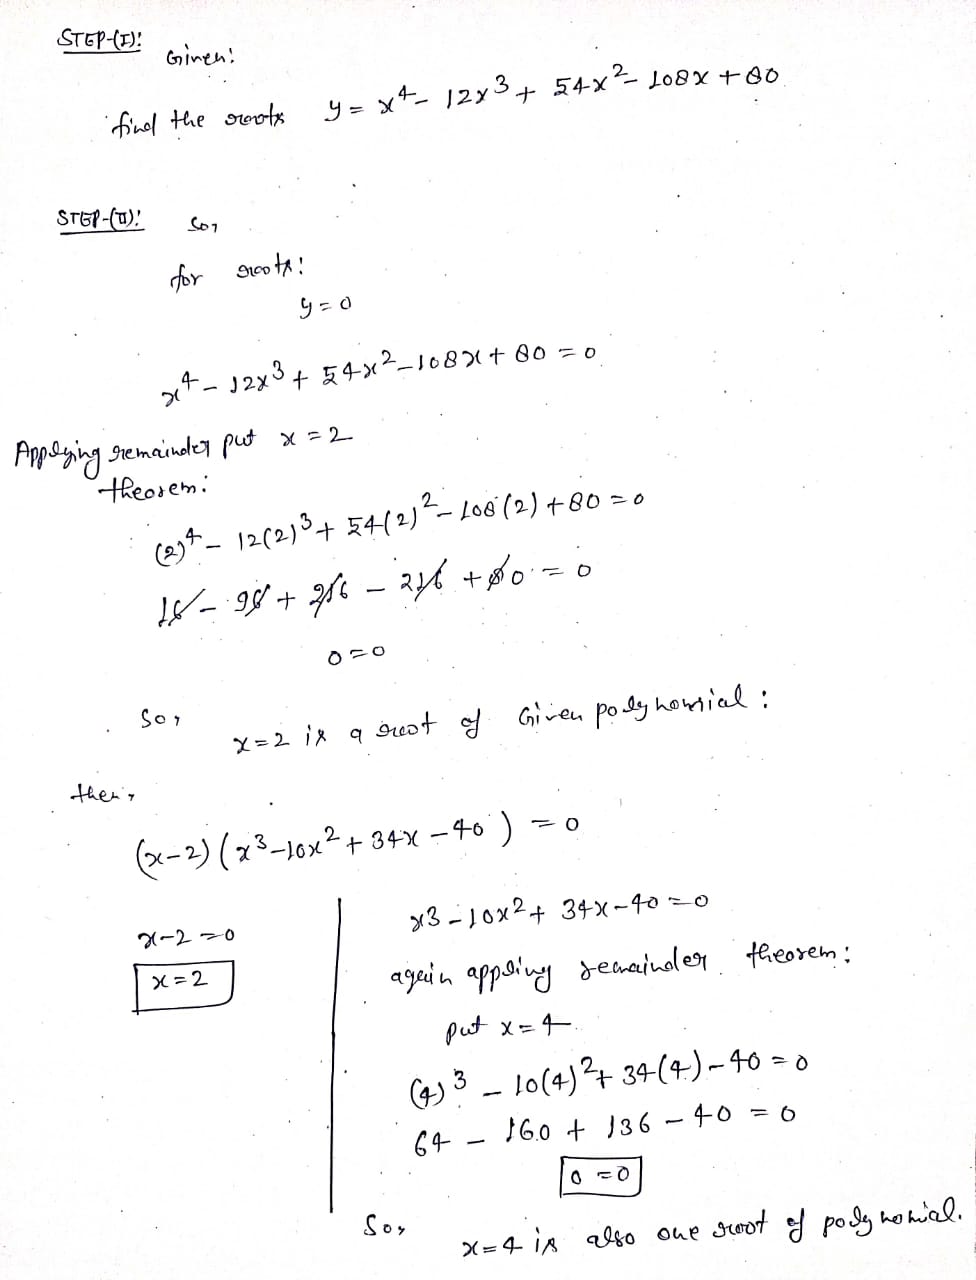 STEP-(I):
Given:
find the roots y = x⁴ - 12x³ + 54x² - 108x + 80
STEP-(II): So,
for roots:
y = 0
x⁴ - 12x³ + 54x² - 108x + 80 = 0
Applying remainder put x = 2
theorem:
(2)⁴ - 12(2)³ + 54(2)² - 108(2) + 80 = 0
16 - 96 + 216 - 216 + 80 = 0
0 = 0
So,
x = 2 is a root of Given polynomial :
then,
(x-2) (x³ - 10x² + 34x - 40) = 0
x - 2 = 0
x = 2
x3 - 10x² + 34x - 40 = 0
again appling remainder theorem:
put x = 4
(4)³ - 10(4)² + 34(4) - 40 = 0
64 - 160 + 136 - 40 = 0
0 = 0
So,
x = 4 is also one root of polynomial.